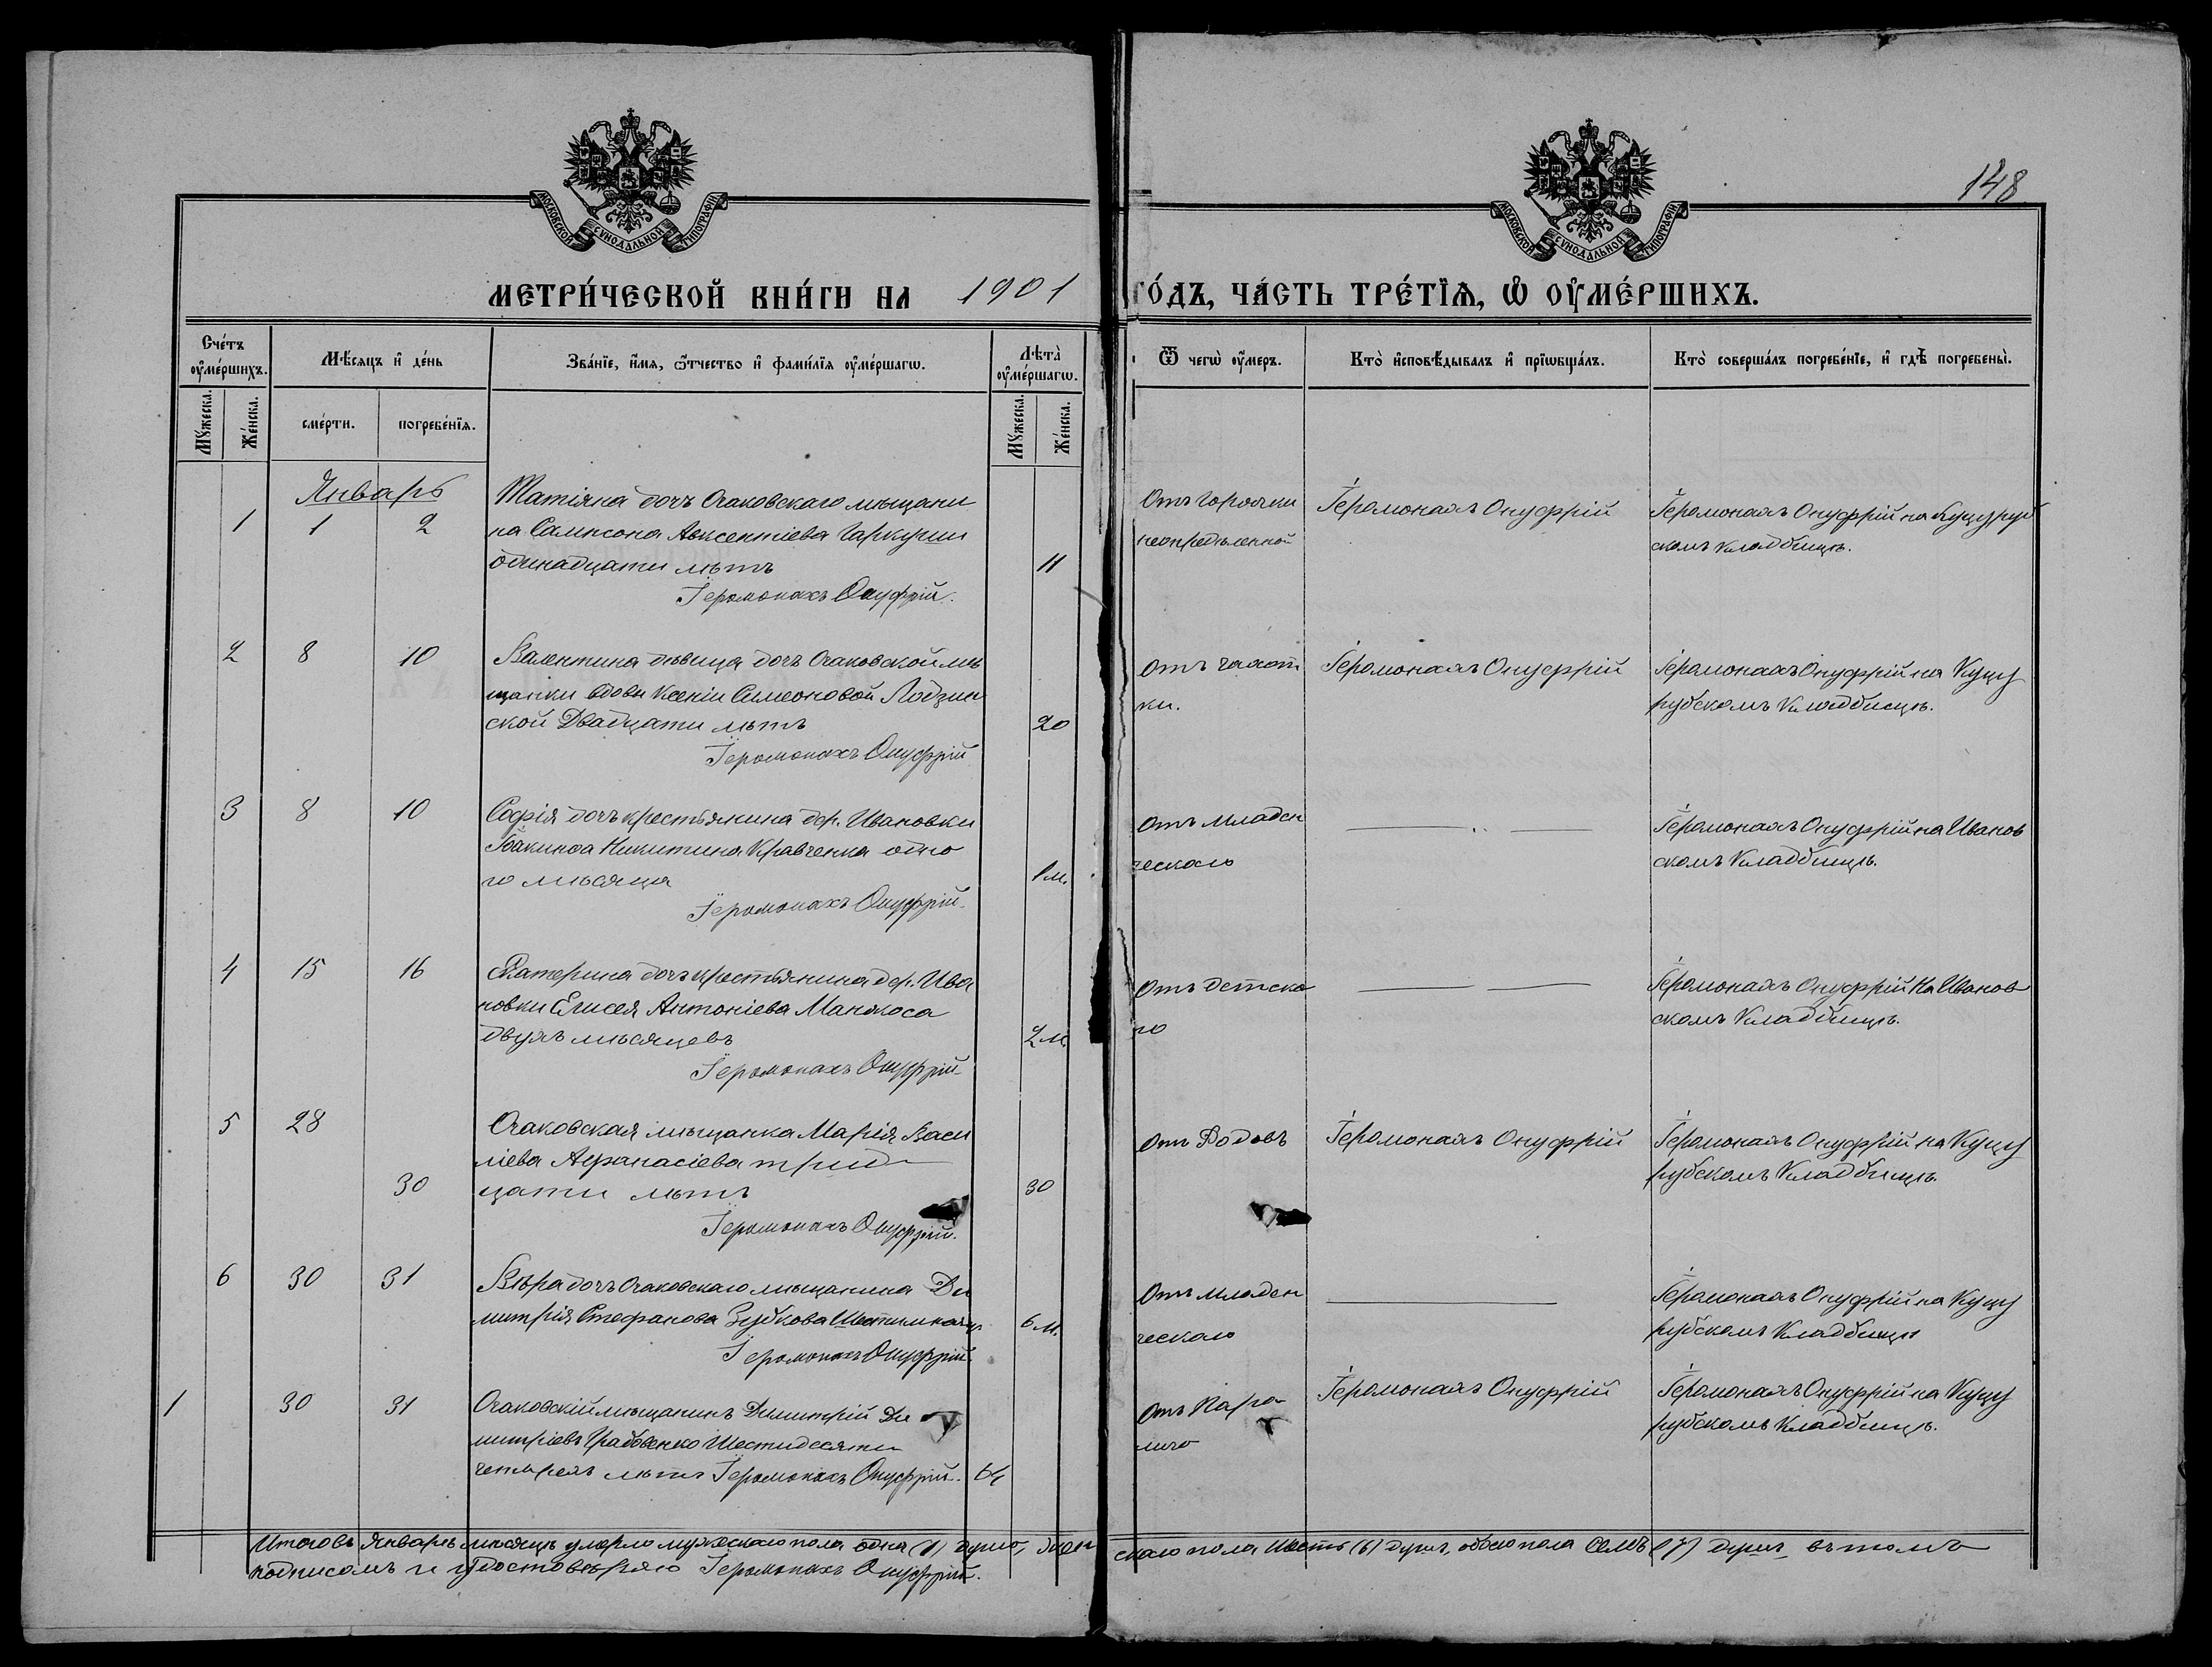 148
МОСКОВСКОЙ СѴНОДАЛЬНОЙ ТИПОГРАФІИ
МОСКОВСКОЙ СѴНОДАЛЬНОЙ ТИПОГРАФІИ
МЕТРИ́ЧЕСКОЙ КНИ́ГИ НА 1901 ГО́ДЪ, ЧА́СТЬ ТРЕ́ТІѦ, Ѽ ОУ҆МЕ́РШИХЪ.
Сче́тъ оу҆ме́ршихъ.
Мꙋ́жеска.
Же́нска.
Мѣ́сяцъ и҆ де́нь
сме́рти.
погребе́нїя.
Зва́нїе, и҆́мя, ѻ҆́тчество и҆ фами́лїя оу҆ме́ршагѡ.
Лѣта̀ оу҆ме́ршагѡ.
Мꙋ́жеска.
Же́нска.
Ѿ чегѡ̀ оу҆́меръ.
Кто̀ и҆сповѣ́дывалъ и҆ прїѡбща́лъ.
Кто̀ соверша́лъ погребе́нїе, и҆ гдѣ̀ погребены̀.
Январь
1 1 2
Татіяна дочъ Очаковскаго мѣщани
на Сампсона Авксентіева Гаркуши
одинадцати лѣтъ
11
Іеромонахъ Онуфрій.
Отъ горячки
неопредѣленной
Іеромонахъ Онуфрій
Іеромонахъ Онуфрій на Куцуруб
скомъ кладбищѣ.
2 8 10
Валентина дѣвица дочъ Очаковской мѣ
щанки вдовы Ксеніи Симеоновой Лодзин
ской Двадцати лѣтъ
20
Іеромонахъ Онуфрій
Отъ чахот
ки.
Іеромонахъ Онуфрій
Іеромонахъ Онуфрій на Куцу
рубскомъ Кладбищѣ.
3 8 10
Софія дочъ крестьянина дер. Ивановки
Іоакинфа Никитина Кравченка одно
го мѣсяца
1 м.
Іеромонахъ Онуфрій.
Отъ младен
ческаго
Іеромонахъ Онуфрій на Иванов
скомъ Кладбищѣ.
4 15 16
Екатерина дочъ крестьянина дер. Ива
новки Елисея Антоніева Манжоса
двухъ мѣсяцевъ
2 м.
Іеромонахъ Онуфрій
Отъ детска
го
Іеромонахъ Онуфрій На Иванов
скомъ Кладбищѣ.
5 28 30
Очаковская мѣщанка Марія Васи
ліева Афанасіева трид
цати лѣтъ
30
Іеромонахъ Онуфрій.
Отъ Родовъ
Іеромонахъ Онуфрій
Іеромонахъ Онуфрій на Куцу
рубскомъ Кладбищѣ.
6 30 31
Вѣра дочъ Очаковскаго мѣщанина Ди
митрія Стефанова Зубкова
6 м.
Іеромонахъ Онуфрій
Отъ младен
ческаго
Іеромонахъ Онуфрій на Куцу
рубскомъ Кладбищѣ
1 30 31
Очаковскій мѣщанинъ Димитрій Ди
митріевъ Шестидесяти
четырехъ лѣтъ Іеромонахъ Онуфрій.
64
Отъ Пара
лича
Іеромонахъ Онуфрій
Іеромонахъ Онуфрій на Куцу
рубскомъ Кладбищѣ.
Итого въ Январѣ мѣсяцѣ умерло мужескаго пола одна (1) душа, жен
скаго пола Шесть (6) душъ, обоего пола Семь (7) душъ, въ томъ
подписомъ и удостовѣряю Іеромонахъ Онуфрій.